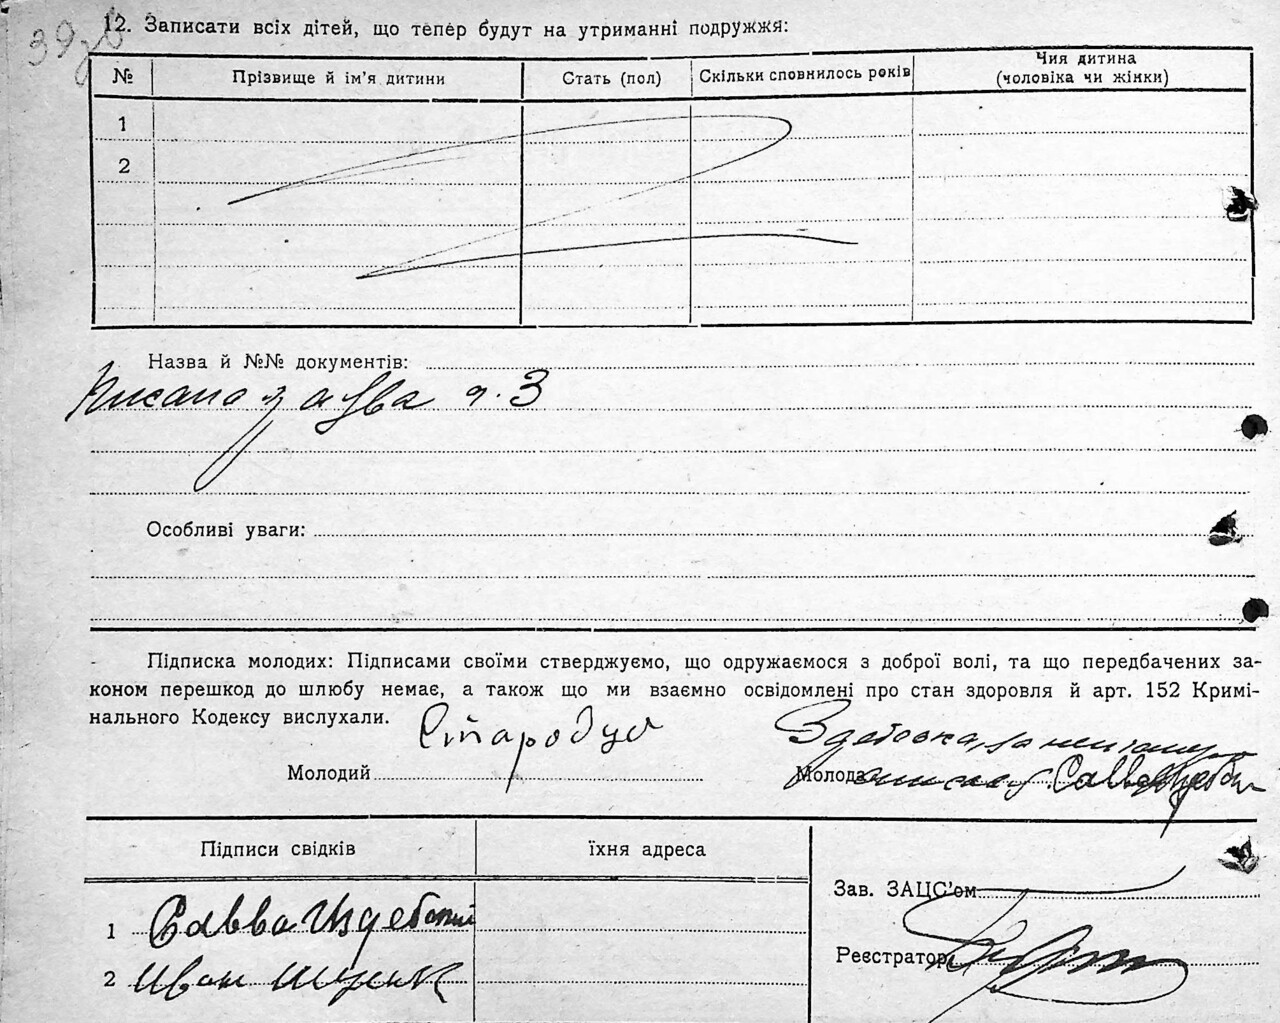 39зв
12. Записати всіх дітей, що тепер будут на утриманні подружжя:
№ Прізвище й ім'я дитини Стать (пол) Скільки сповнилось років Чия дитина (чоловіка чи жінки)
1
2
Назва й №№ документів:
Писано
3
Особливі уваги:
Підписка молодих: Підписами своїми стверджуємо, що одружаємося з доброї волі, та що передбачених за-
коном перешкод до шлюбу немає, а також що ми взаємно освідомлені про стан здоровля й арт. 152 Кримі-
нального Кодексу вислухали.
Молодий Стародуб
Молода
Підписи свідків їхня адреса
Зав. ЗАЦС'ом
1 Савва Издебский
Реєстратор
2 Иван